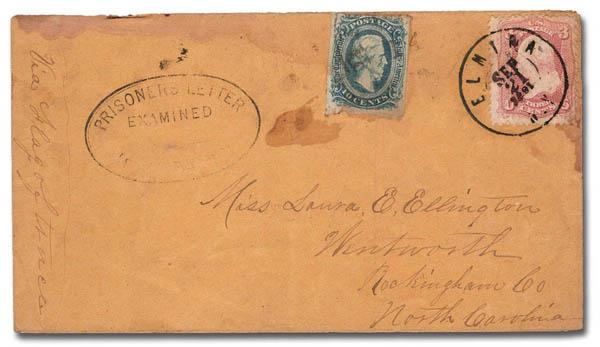 Via Flag of Truce
PRISONERS LETTER
EXAMINED
POSTAGE
10 CENTS
U.S.
3
THREE
CENTS
ELMIRA
SEP
21
N.Y.
Miss Laura, E, Ellington
Wentworth
Rockingham Co
North Carolina